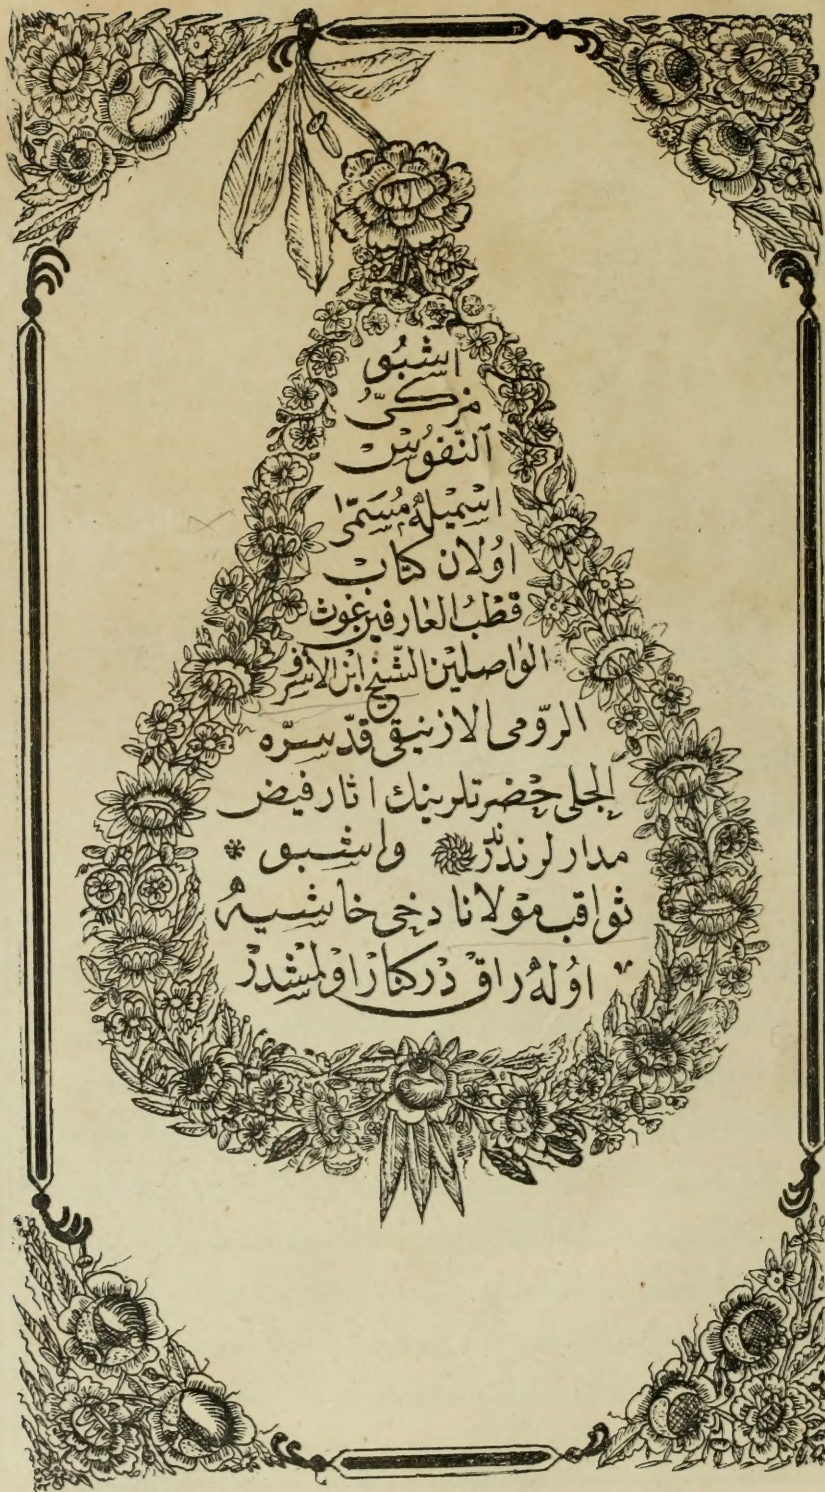 اشبُو
مزكىّ
النّفوُس
اسْميْلهْ مُسَمّٰا
اوُلان كتاب
قطْبُ العارفين غوث
الوٰاصلين الشّيخ ابن الاشرف
الرّومى الازنيقى قدّ سرّه
الجلى حضرتلرينك اثار فيض
مدار لرندندر واشبو *
ثواقب مولانا دخى حاشيهْ
اوُلهْ راق دركنار اولمشدر